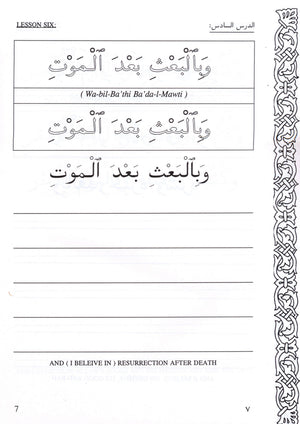 LESSON SIX: الدرس السادس:
وَبِالْبَعْثِ بَعْدَ الْمَوْتِ
( Wa-bil-Ba'thi Ba'da-l-Mawti )
وَبِالْبَعْثِ بَعْدَ الْمَوْتِ
وَبِالْبَعْثِ بَعْدَ الْمَوْتِ
AND ( I BELEIVE IN ) RESURRECTION AFTER DEATH
7 ٧